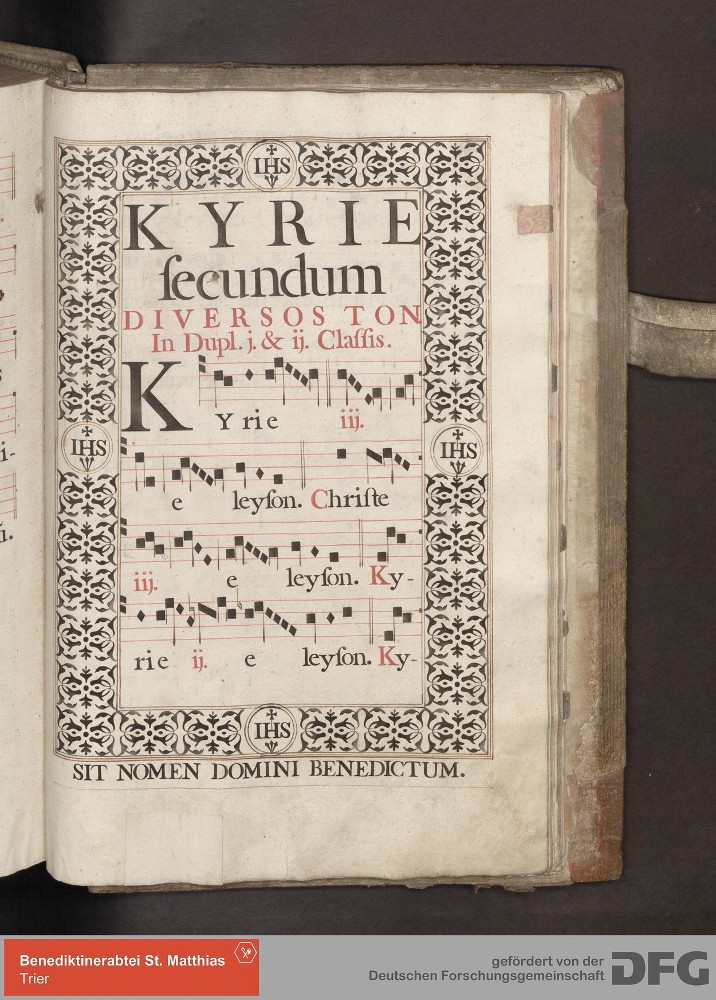 IHS
KYRIE
ſecundum
DIVERSOS TON
In Dupl. j. & ij. Claſſis.
KYrie iij.
IHS
IHS
e leyſon. Chriſte
iij. e leyſon. Ky-
rie ij. e leyſon. Ky-
IHS
SIT NOMEN DOMINI BENEDICTUM.
i-
Benediktinerabtei St. Matthias
Trier
gefördert von der
Deutschen Forschungsgemeinschaft
DFG